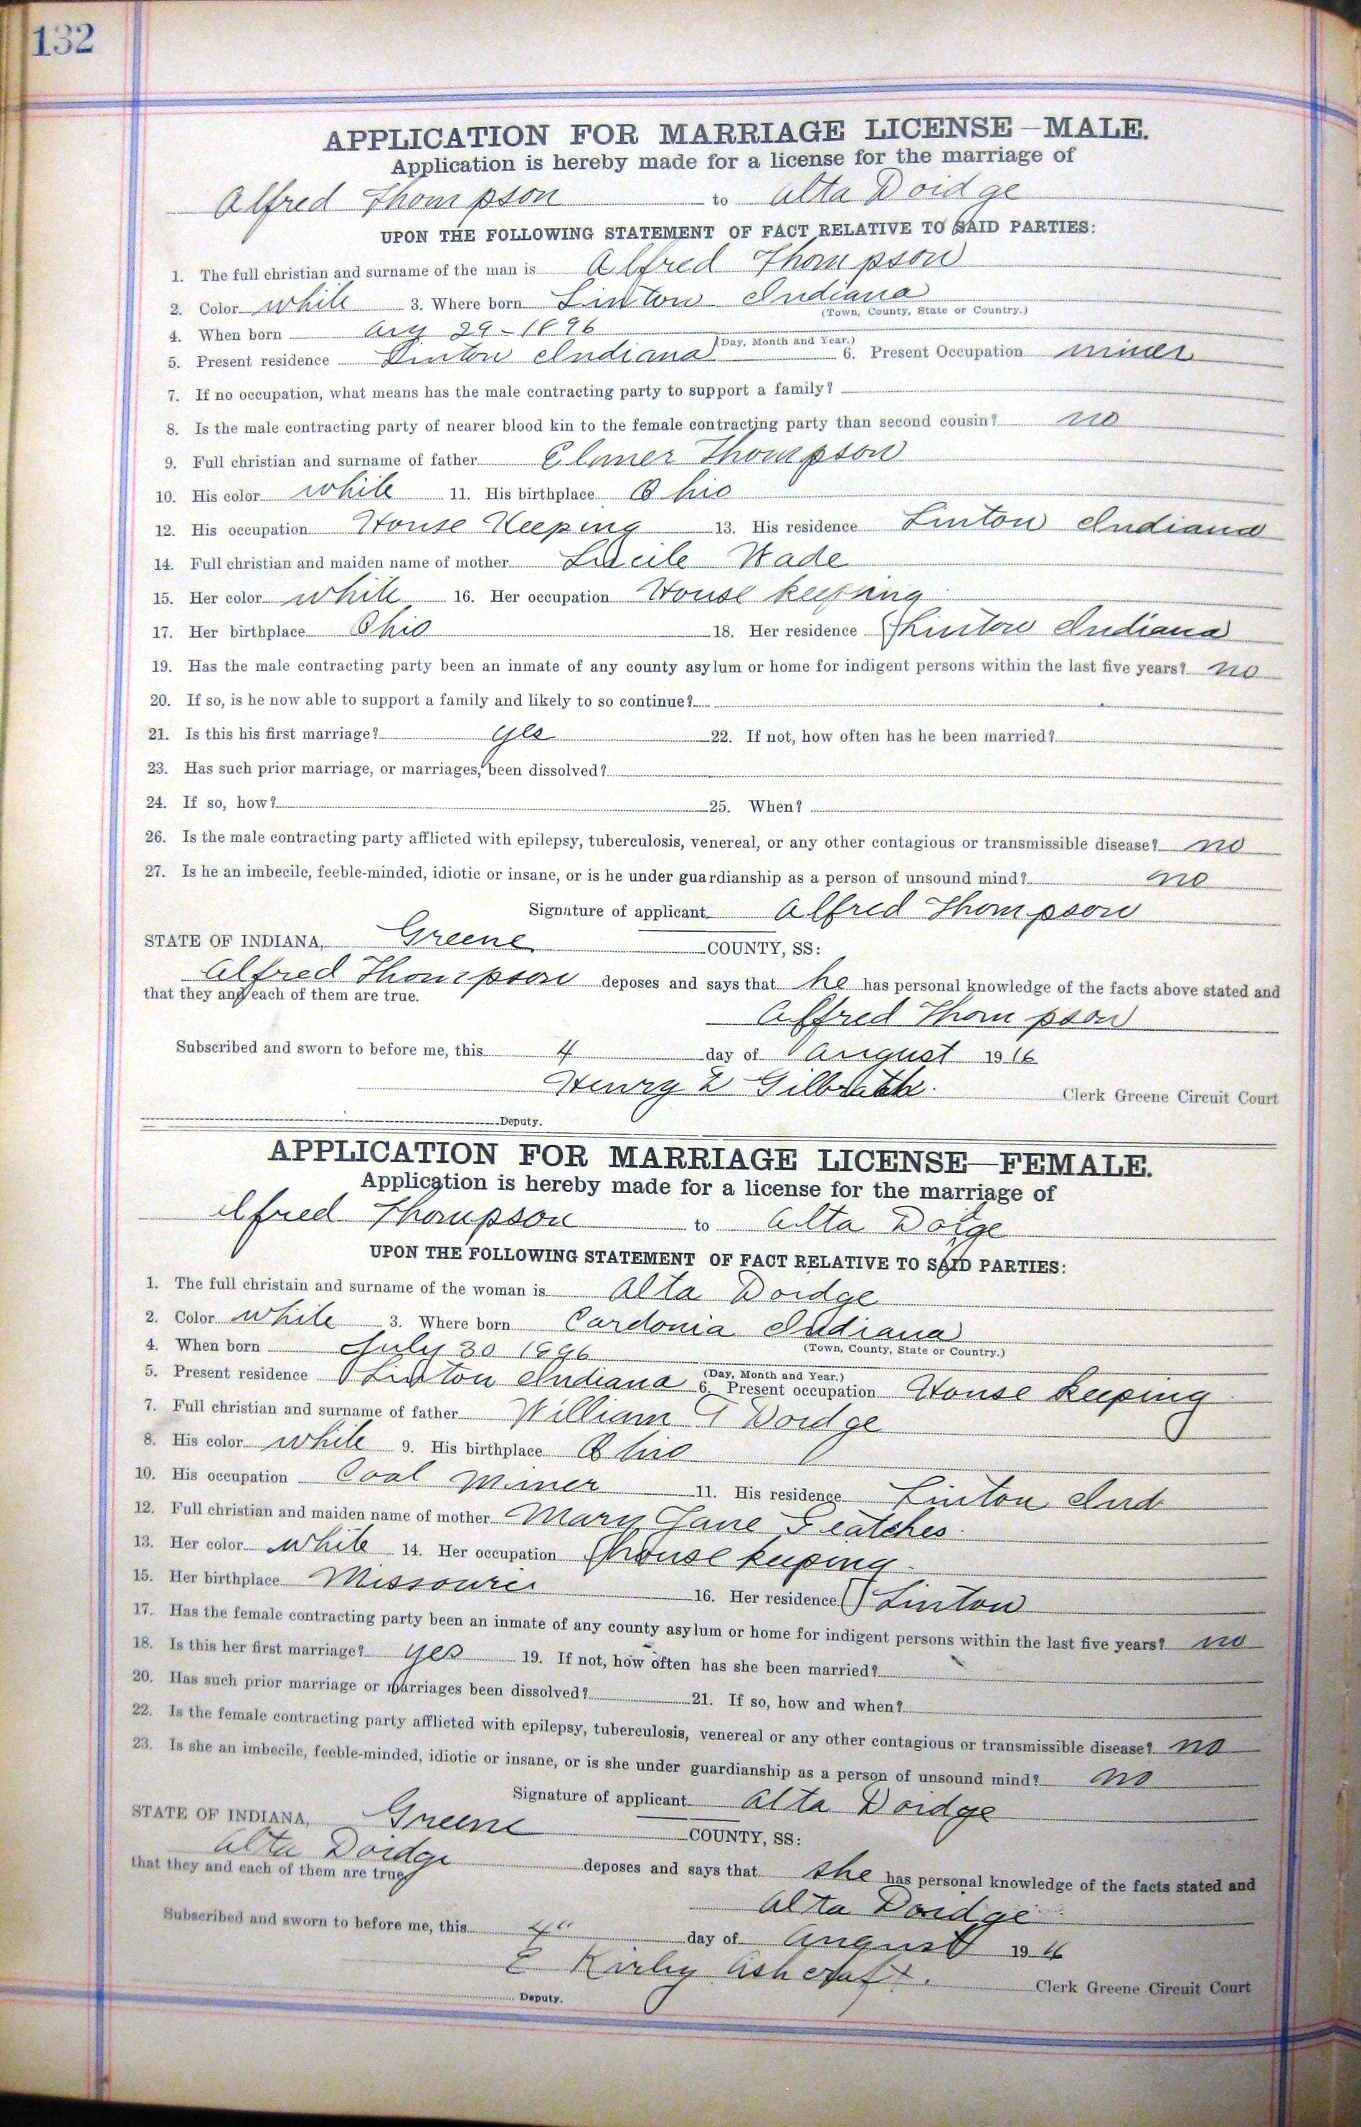 132
APPLICATION FOR MARRIAGE LICENSE—MALE.
Application is hereby made for a license for the marriage of
Alfred Thompson to Alta Doidge
UPON THE FOLLOWING STATEMENT OF FACT RELATIVE TO SAID PARTIES:
1. The full christian and surname of the man is Alfred Thompson
2. Color white 3. Where born Linton Indiana
(Town, County, State or Country.)
4. When born 29-1896
(Day, Month and Year.)
5. Present residence Linton Indiana 6. Present Occupation miner
7. If no occupation, what means has the male contracting party to support a family?
8. Is the male contracting party of nearer blood kin to the female contracting party than second cousin? no
9. Full christian and surname of father Elmer Thompson
10. His color white 11. His birthplace Ohio
12. His occupation House Keeping 13. His residence Linton Indiana
14. Full christian and maiden name of mother Lucile Wade
15. Her color white 16. Her occupation House keeping
17. Her birthplace Ohio 18. Her residence Linton Indiana
19. Has the male contracting party been an inmate of any county asylum or home for indigent persons within the last five years? no
20. If so, is he now able to support a family and likely to so continue?
21. Is this his first marriage? yes 22. If not, how often has he been married?
23. Has such prior marriage, or marriages, been dissolved?
24. If so, how? 25. When?
26. Is the male contracting party afflicted with epilepsy, tuberculosis, venereal, or any other contagious or transmissible disease? no
27. Is he an imbecile, feeble-minded, idiotic or insane, or is he under guardianship as a person of unsound mind? no
Signature of applicant Alfred Thompson
STATE OF INDIANA, Greene COUNTY, SS:
Alfred Thompson deposes and says that he has personal knowledge of the facts above stated and
that they and each of them are true.
Alfred Thompson
Subscribed and sworn to before me, this 4 day of August 1916
Henry E Gilbrath. Clerk Greene Circuit Court
Deputy.
APPLICATION FOR MARRIAGE LICENSE—FEMALE.
Application is hereby made for a license for the marriage of
Alfred Thompson to Alta Doige
UPON THE FOLLOWING STATEMENT OF FACT RELATIVE TO SAID PARTIES:
1. The full christain and surname of the woman is Alta Doidge
2. Color white 3. Where born Cardonia Indiana
(Town, County, State or Country.)
4. When born July 30 1896
(Day, Month and Year.)
5. Present residence Linton Indiana 6. Present occupation House keeping
7. Full christian and surname of father William T Doidge
8. His color white 9. His birthplace Ohio
10. His occupation Coal Miner 11. His residence Linton Ind
12. Full christian and maiden name of mother Mary Jane
13. Her color white 14. Her occupation house keeping
15. Her birthplace Missouri 16. Her residence Linton
17. Has the female contracting party been an inmate of any county asylum or home for indigent persons within the last five years? no
18. Is this her first marriage? yes 19. If not, how often has she been married?
20. Has such prior marriage or marriages been dissolved? 21. If so, how and when?
22. Is the female contracting party afflicted with epilepsy, tuberculosis, venereal or any other contagious or transmissible disease? no
23. Is she an imbecile, feeble-minded, idiotic or insane, or is she under guardianship as a person of unsound mind? no
Signature of applicant Alta Doidge
STATE OF INDIANA, Greene COUNTY, SS:
Alta Doidge deposes and says that she has personal knowledge of the facts stated and
that they and each of them are true
Alta Doidge
Subscribed and sworn to before me, this 4" day of August 1916
E Kirby Ashcraft. Clerk Greene Circuit Court
Deputy.